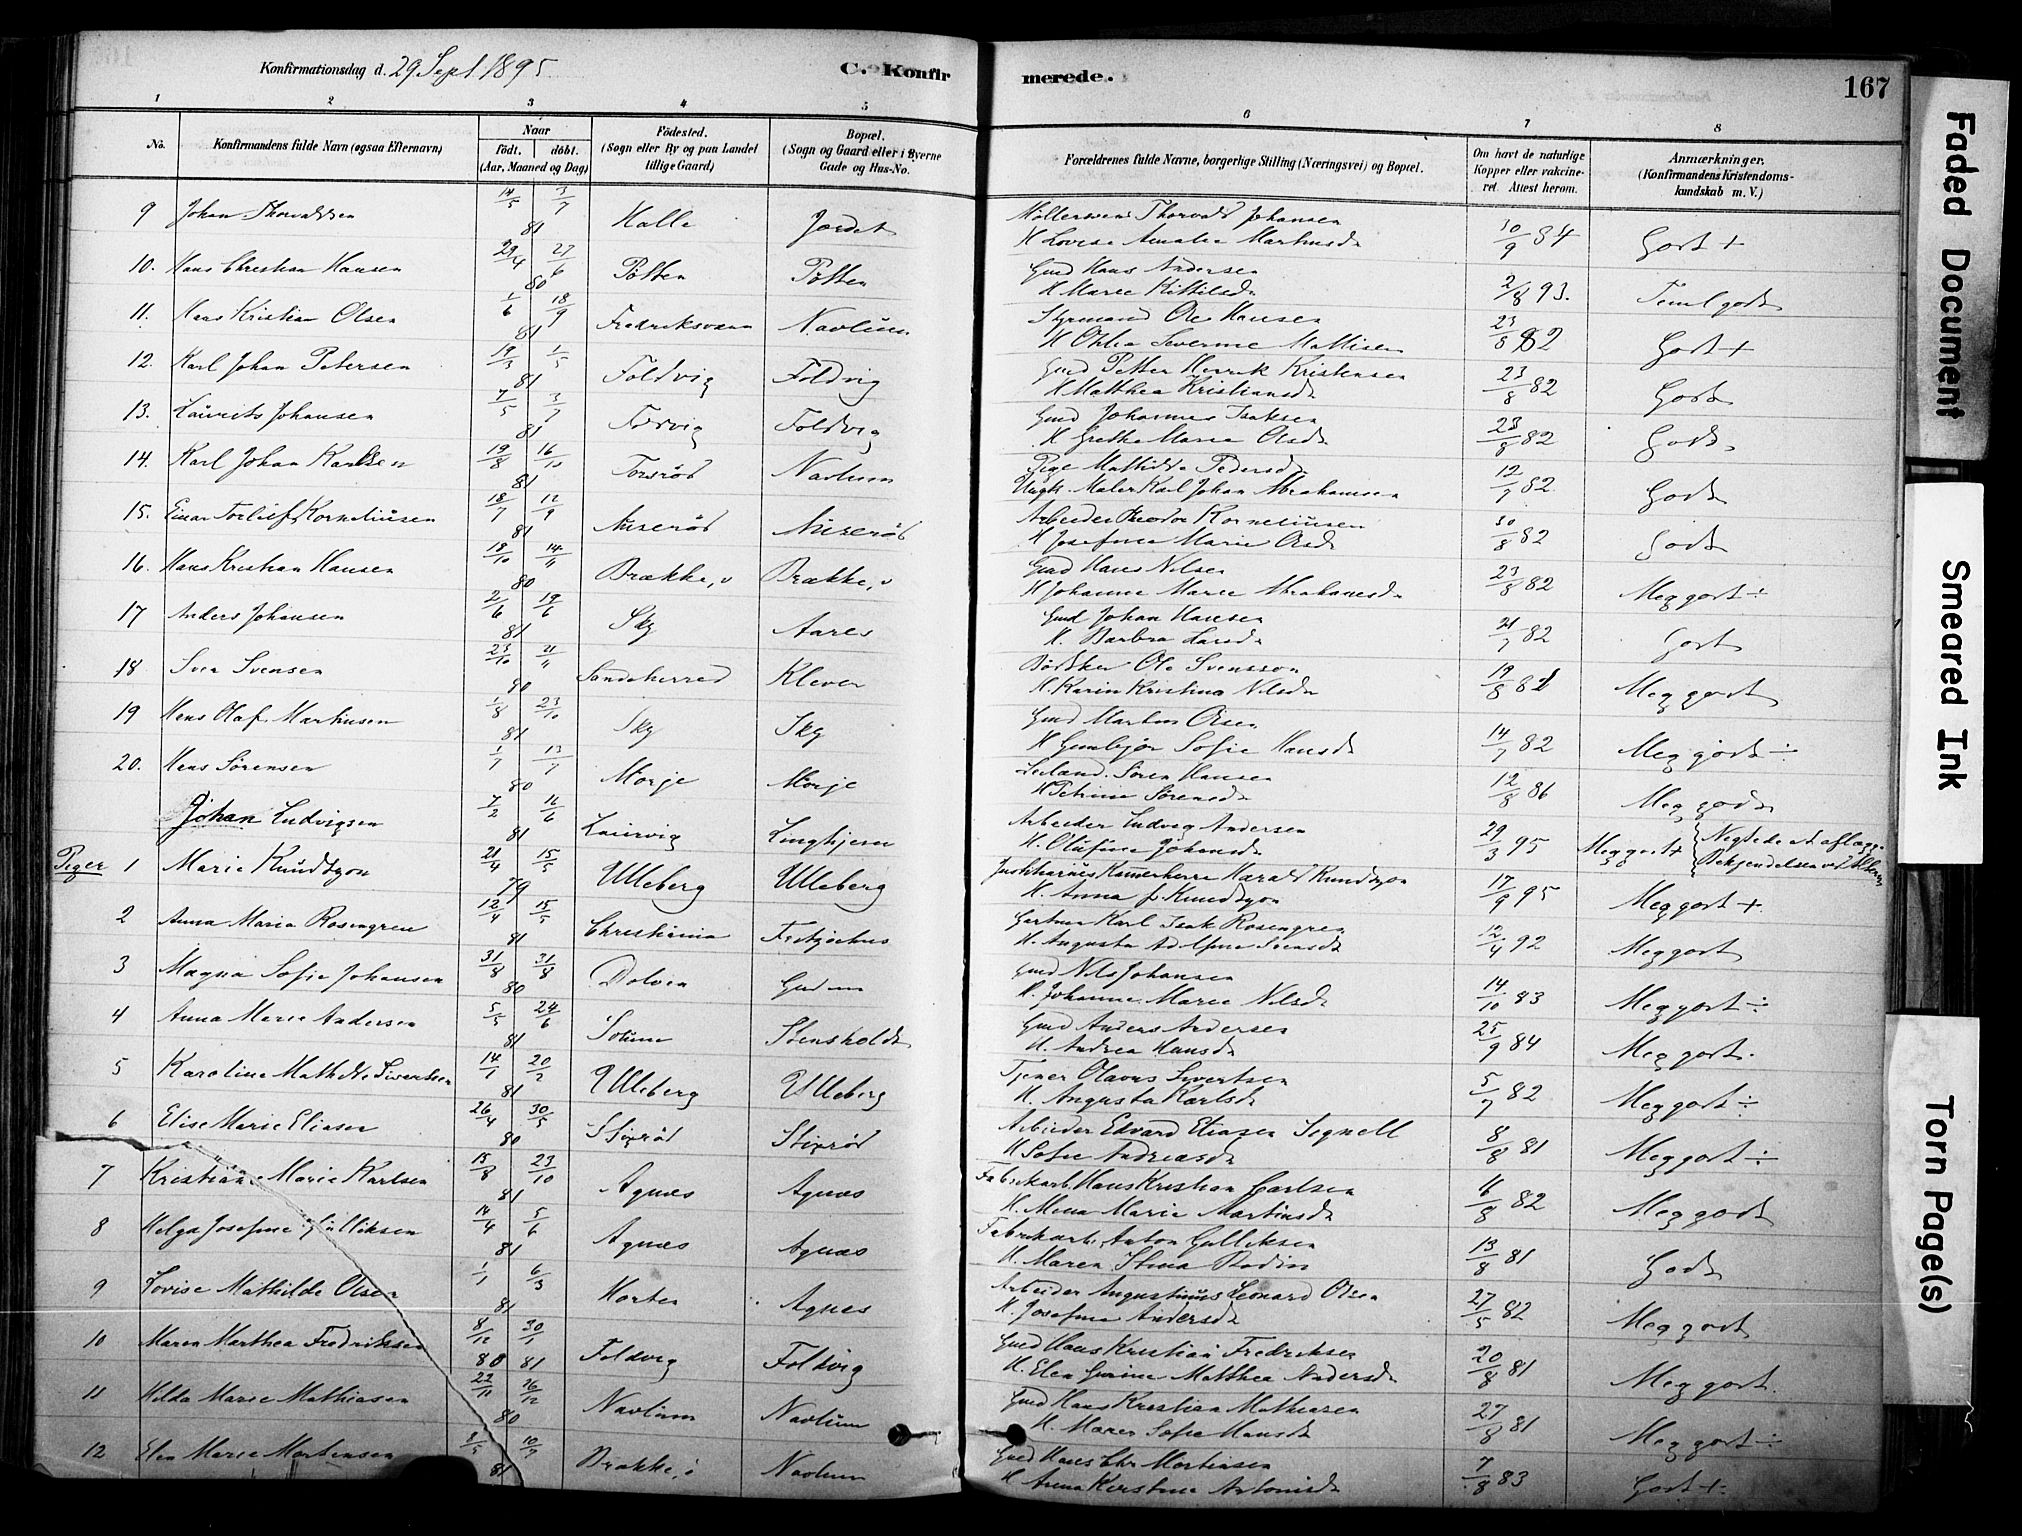 Konfirmationsdag d. 29 Sept 1895
C. Konfir merede. 167
1 2 3 4 5 6 7 8
No. Konfirmandens fulde Navn (ogsaa Efternavn) Naar Födt. döbt. (Aar, Maaned og Dag) Födested. (Sogn eller By og paa Landet tillige Gaard) Bopæl. (Sogn og Gaard eller i Byerne Gade og Hus-No. Forældrenes fulde Navne, borgerlige Stilling (Næringsvei) og Bopæl. Om havt de naturlige Kopper eller vakcineret. Attest herom. Anmærkninger. (Konfirmandens Kristendomskundskab m. V.)
9 Johan Thorvaldsen 14/5 3/7 81 Halle Jordet Thorvald Johansen
H Lovise Amalie 10/9 84 Godt +
10. Hans Christian Hansen 29/4 27/6 80 Pøtten Pøtten Gmd Hans Andersen
H Maree Kittilsdr 2/8 93. Teml godt
11. Hans Kristian Olsen 1/6 18/9 81 Fredriksværn Navlum Styrmand Ole Hansen
H Severine 23/8 82 Godt +
12. Karl Johan Petersen 19/3 1/5 81 Foldvig Foldvig Gmd Petter Henrik Kristensen
H Matthea Kristiansdr 23/8 82 Godt
13. Laurits Johansen 7/5 3/7 81 Foldvig Gmd Johannes Isaksen
H Grethe Marie Olsdr 23/8 82 Godt
14. Karl Johan Karlsen 19/8 16/10 81 Torsrød Navlum Pige Mathilde Pedersdr
Ungk. Maler Karl Johan Abrahamsen 12/7 82. Godt
15. Einar Torleif Korneliusen 18/7 11/9 81 Auserød Auserød Arbeider Theodor Korneliusen
H Josefine Marie Olsdr 30/8 82 Godt
16. Hans Kristian Hansen 18/10 14/11 80 Brække, v Brække, v Gmd Hans Nilsen
H Johanne Maree Abrahamsdr 23/8 82 Meg godt ÷
17 Anders Johansen 2/6 19/6 81 Sky Aares Gmd Johan Hansen
H. Barbra Larsdr 21/7 82 Godt
18 Sven Svensen 23/10 21/11 80 Sandeherred Klever Bødker Ole Svensson
H. Karin Kristina Nilsdr 19/8 82 Meg godt
19 Hans Olaf Martinsen 1/8 23/10 81 Sky Sky Gmd Martin Olsen
H Gunbjør Sofie Hansdr 14/7 82 Meg godt ÷
20. Hans Sørensen 1/7 13/7 80 Morje Morje Leiland. Søren Hansen
H Petrine Sørensdr 12/8 86 Meg godt
Johan Ludvigsen 7/2 16/6 81 Laurvig Arbeider Ludvig Andersen
H. Olufine Johansdr 29/3 95 Meg godt + Negtede at aflægge Bekjendelsen ved Alteret
Piger 1 Marie Knudtzon 21/4 15/5 79 Ulleberg Ulleberg Kammerherre Harald Knudtzon
H. Anna f. Knudtzon 17/9 95 Meg godt +
2 Anna Maria Rosengren 12/4 15/5 81 Christiania Gartner Karl Isak Rosengren
H. Augusta Svensdr 12/4 92 Meg godt
3 Magna Sofie Johansen 31/8 31/8 80 Dolven Gmd Nils Johansen
H. Johanne Marie Nilsdr 14/10 83 Meg godt ÷
4 Anna Marie Andersen 5/5 24/6 81 Solum Stensholdt Gmd Anders Andersen
H. Andrea Hansdr 25/9 84 Meg godt.
5 Karoline Mathilde Sivertsen 14/1 20/2 81 Ulleberg Ulleberg Tjener Olavus Sivertsen
H. Augusta Karlsdr 5/7 82 Meg godt ÷
6 Elise Marie Eliasen 26/4 30/5 80 Stixrød Stixrød Arbeider Edvard Eliasen Segnell
H Sofie Andreasdr 8/8 81 Meg godt ÷
7 Kristiane Marie Karlsen 15/8 23/10 81 Agnæs Agnæs Fabrikarb. Hans Kristian Carlsen
H. Mina Marie Martinsdr 16/8 82 Meg godt
8 Helga Josefine Gulliksen 14/4 5/6 81 Agnæs Agnæs Fabrikarb. Anton Gulliksen
H. Maren Stina 13/8 81 Godt
9 Lovise Mathilde Olsen 1/1 6/3 81 Horten Agnes Arbeider Augustinus Leonard Olsen
H. Josefine Andersdr 27/5 82 Meg godt
10 Maren Marthea Fredriksen 8/12 80 30/1 81 Foldvig Foldvig Gmd Hans Kristian Fredriksen
H. Elen Matthea Andersdr 20/8 81 Meg godt.
11 Hilda Marie Mathiasen 22/11 26/12 80 Navlum Navlum Gmd Hans Kristian Mathiasen
H. Maren Sofie Hansdr 27/8 81 Meg godt ÷
12 Elen Marie Martinsen 8/5 10/7 81 Brække, ø Navlum Gmd Hans Chr Martinsen
H Anna Kirstine Antonisdr 7/8 83 Godt ÷
Faded Document
Smeared Ink
Torn Page(s)